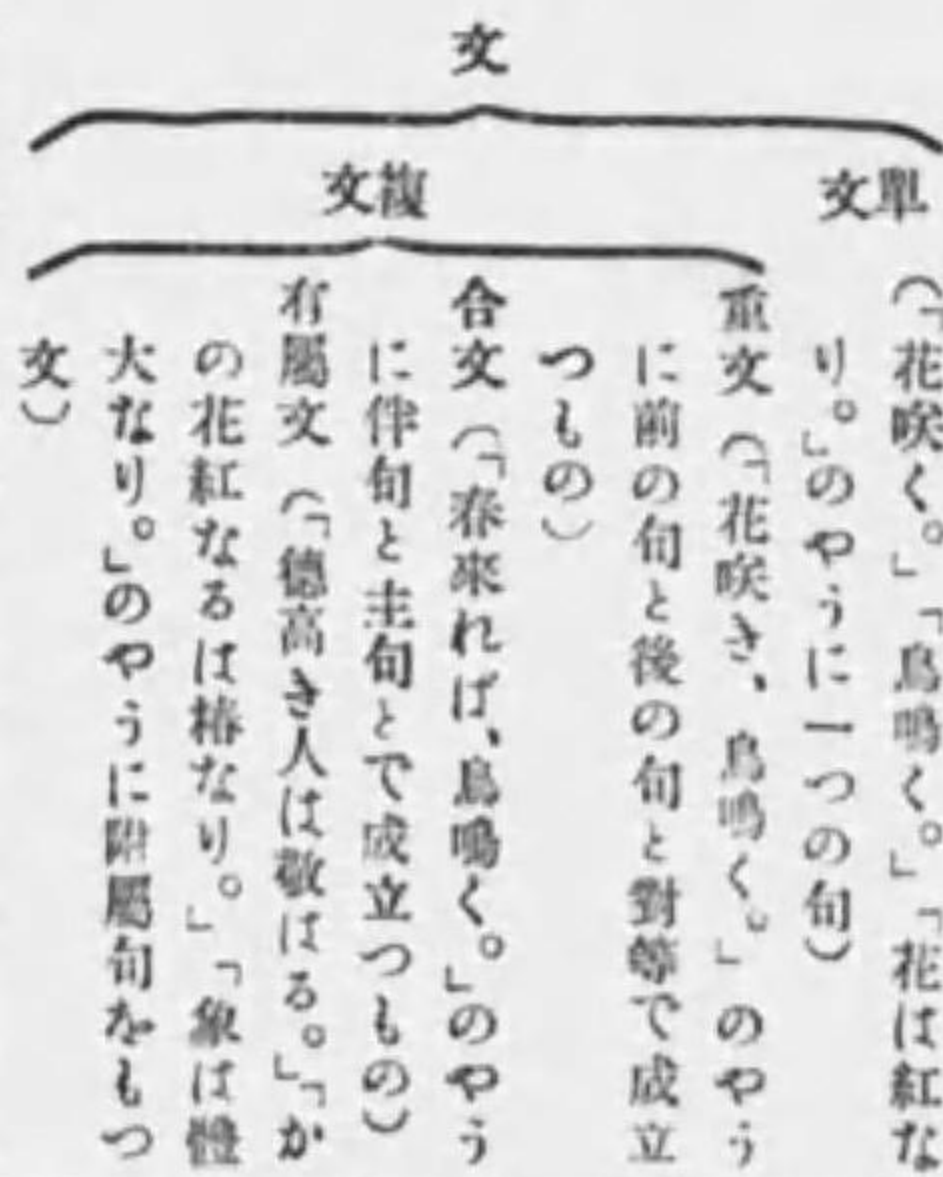 文
單文
(「花咲く。」「鳥鳴く。」「花は紅な
り。」のやうに一つの句)
複文
重文(「花咲き、鳥鳴く。」のやう
に前の句と後の句と對等で成立
つもの)
合文(「春來れば、鳥鳴く。」のやう
に伴句と主句とで成立つもの)
有屬文(「德高き人は敬はる。」「か
の花紅なるは椿なり。」「象は體
大なり。」のやうに附屬句をもつ
文)